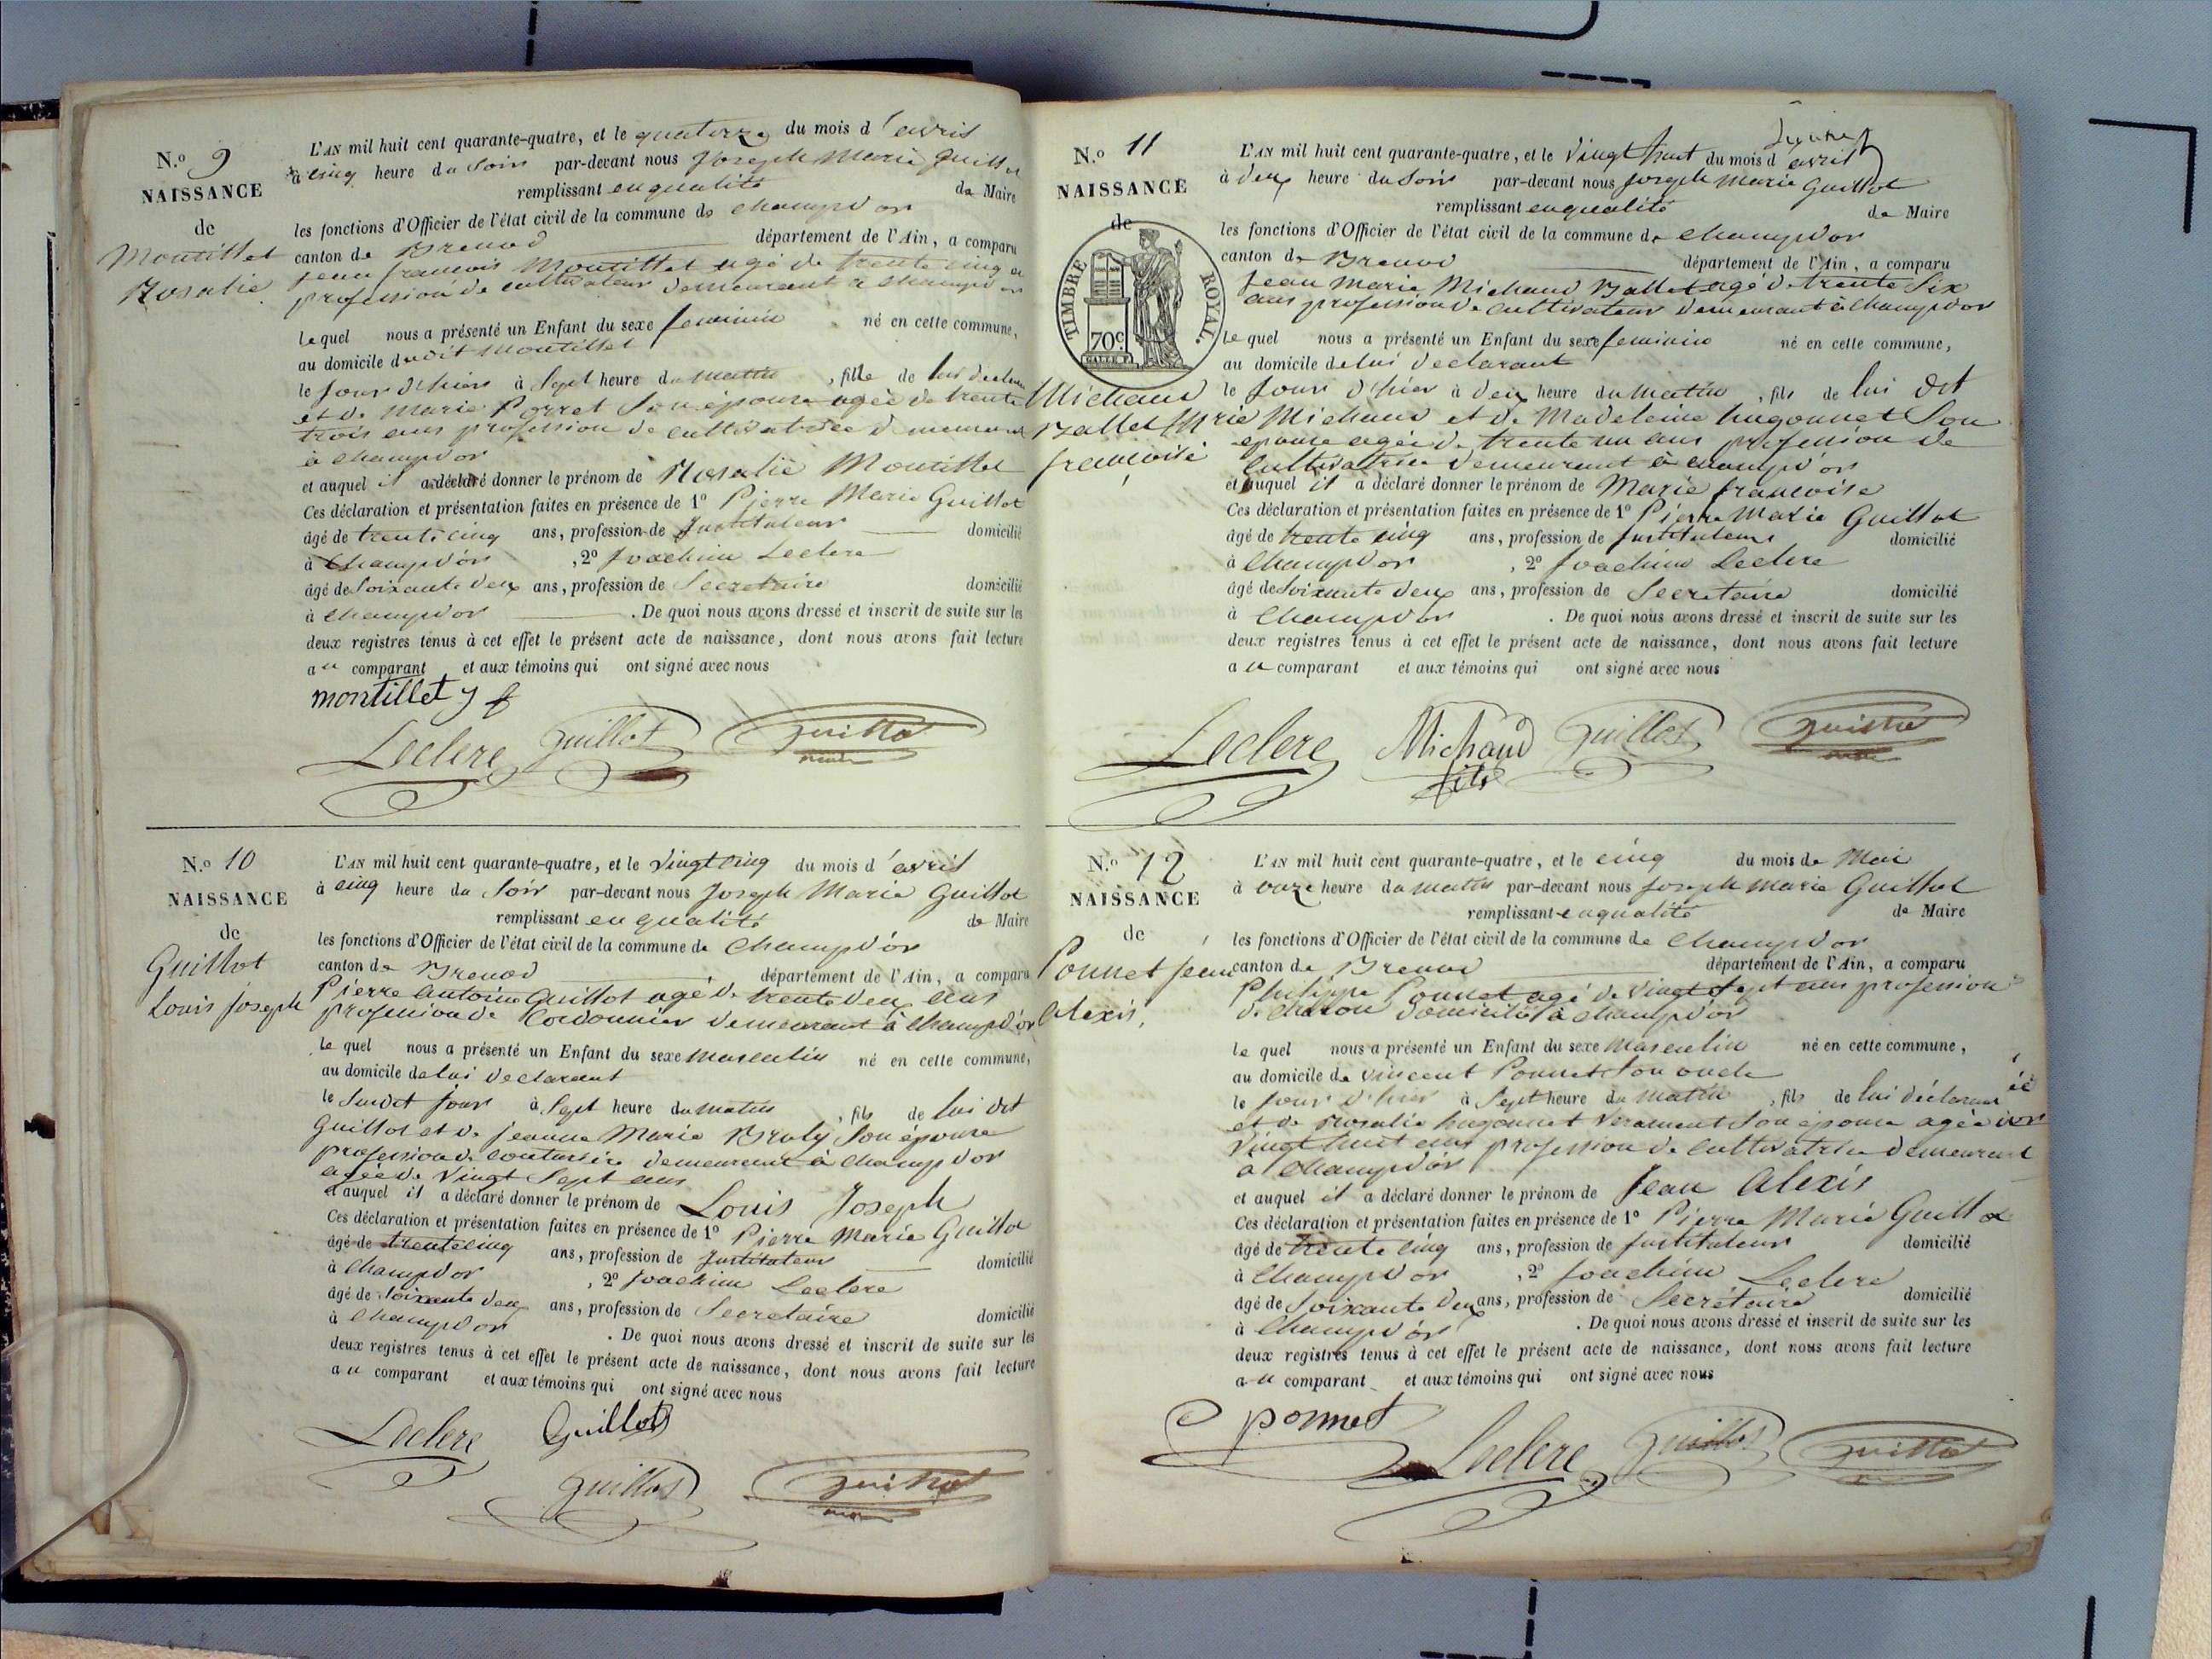 N.o 9
NAISSANCE
de
Montillet
Rosalie
L'AN mil huit cent quarante-quatre, et le quatorze du mois d'avril
à cinq heure du Soir par-devant nous Joseph Marie Guillot
remplissant en qualité de Maire
les fonctions d'Officier de l'état civil de la commune de Champd'or
canton de Brenod département de l'Ain, a comparu
jean francois Montillet agé de trente cinq an
profession de cultivateur demeurant a Champd'or
Lequel nous a présenté un Enfant du sexe feminin né en cette commune,
au domicile dudit Montillet
le Jour d'hier à Sept heure du matin, fille de lui declarant
et de Marie Porret Son épouse agée de trente
trois ans profession de cultivatrice demeurant
à Champd'or
et auquel il a déclaré donner le prénom de Rosalie Montillet
Ces déclaration et présentation faites en présence de 1o Pierre Marie Guillot
âgé de trente cinq ans, profession de Instituteur domicilié
à Champd'or, 2o Joachim Leclerc
âgé de Soixante deux ans, profession de Secretaire domicilié
à Champd'or. De quoi nous avons dressé et inscrit de suite sur les
deux registres tenus à cet effet le présent acte de naissance, dont nous avons fait lecture
au comparant et aux témoins qui ont signé avec nous
montillet j f
Leclerc Guillot Guillot
N.o 10
NAISSANCE
de
Guillot
Louis Joseph
L'AN mil huit cent quarante-quatre, et le Vingt cinq du mois d'avril
à cinq heure du Soir par-devant nous Joseph Marie Guillot
remplissant en qualité de Maire
les fonctions d'Officier de l'état civil de la commune de Champd'or
canton de Brenod département de l'Ain, a comparu
Pierre Antoine Guillot agé de trente deux ans
profession de Cordonnier demeurant à Champd'or
Le quel nous a présenté un Enfant du sexe masculin né en cette commune,
au domicile de lui declarant
le Susdit jour à Sept heure du matin, fils de lui dit
Guillot et de jeanne Marie Bruly Son épouse
profession de couturière demeurant à Champd'or
agée de Vingt Sept ans
et auquel il a déclaré donner le prénom de Louis Joseph
Ces déclaration et présentation faites en présence de 1o Pierre Marie Guillot
âgé de trente cinq ans, profession de Instituteur domicilié
à Champd'or, 2o Joachim Leclerc
âgé de Soixante deux ans, profession de Secretaire domicilié
à Champd'or. De quoi nous avons dressé et inscrit de suite sur les
deux registres tenus à cet effet le présent acte de naissance, dont nous avons fait lecture
au comparant et aux témoins qui ont signé avec nous
Leclerc Guillot
Guillot Guillot
N.o 11
NAISSANCE
de
TIMBRE ROYAL.
70c
Michaud
Ballet Marie
francoise
L'AN mil huit cent quarante-quatre, et le Vingt huit du mois d'avril
à deux heure du Soir par-devant nous Joseph Marie Guillot
remplissant en qualité de Maire
les fonctions d'Officier de l'état civil de la commune de Champd'or
canton de Brenod département de l'Ain, a comparu
Jean Marie Michaud Ballet agé de trente Six
ans profession de cultivateur demeurant à Champd'or
Le quel nous a présenté un Enfant du sexe feminin né en cette commune,
au domicile de lui declarant
le Jour d'hier à deux heure du matin, fils de lui dit
Michaud et de Madeleine hugonnet Son
epouse agée de trente un ans profession de
Cultivatrice demeurant à champd'or
et auquel il a déclaré donner le prénom de Marie francoise
Ces déclaration et présentation faites en présence de 1o Pierre Marie Guillot
âgé de trente cinq ans, profession de Instituteur domicilié
à Champd'or, 2o Joachim Leclerc
âgé de Soixante deux ans, profession de Secretaire domicilié
à Champd'or. De quoi nous avons dressé et inscrit de suite sur les
deux registres tenus à cet effet le présent acte de naissance, dont nous avons fait lecture
au comparant et aux témoins qui ont signé avec nous
Leclerc Michaud Guillot Guillot
fils
N.o 12
NAISSANCE
de
Ponnet Jean
Alexis
L'AN mil huit cent quarante-quatre, et le cinq du mois de Mai
à onze heure du matin par-devant nous Joseph Marie Guillot
remplissant en qualité de Maire
les fonctions d'Officier de l'état civil de la commune de Champd'or
canton de Brenod département de l'Ain, a comparu
Philippe Ponnet agé de Vingt Sept ans profession
de domicilié à Champd'or
Le quel nous a présenté un Enfant du sexe Masculin né en cette commune,
au domicile de vincent Ponnet Son oncle
le jour d'hier à Sept heure du matin, fils de lui déclarant
et de Rosalie hugonnet Son épouse agée
Vingt huit ans profession de cultivatrice demeurant
a Champd'or
et auquel il a déclaré donner le prénom de Jean Alexis
Ces déclaration et présentation faites en présence de 1o Pierre Marie Guillot
âgé de trente cinq ans, profession de Instituteur domicilié
à Champd'or, 2o Joachim Leclerc
âgé de Soixante deux ans, profession de Secrétaire domicilié
à Champd'or. De quoi nous avons dressé et inscrit de suite sur les
deux registres tenus à cet effet le présent acte de naissance, dont nous avons fait lecture
au comparant et aux témoins qui ont signé avec nous
ponnet
Leclerc Guillot Guillot